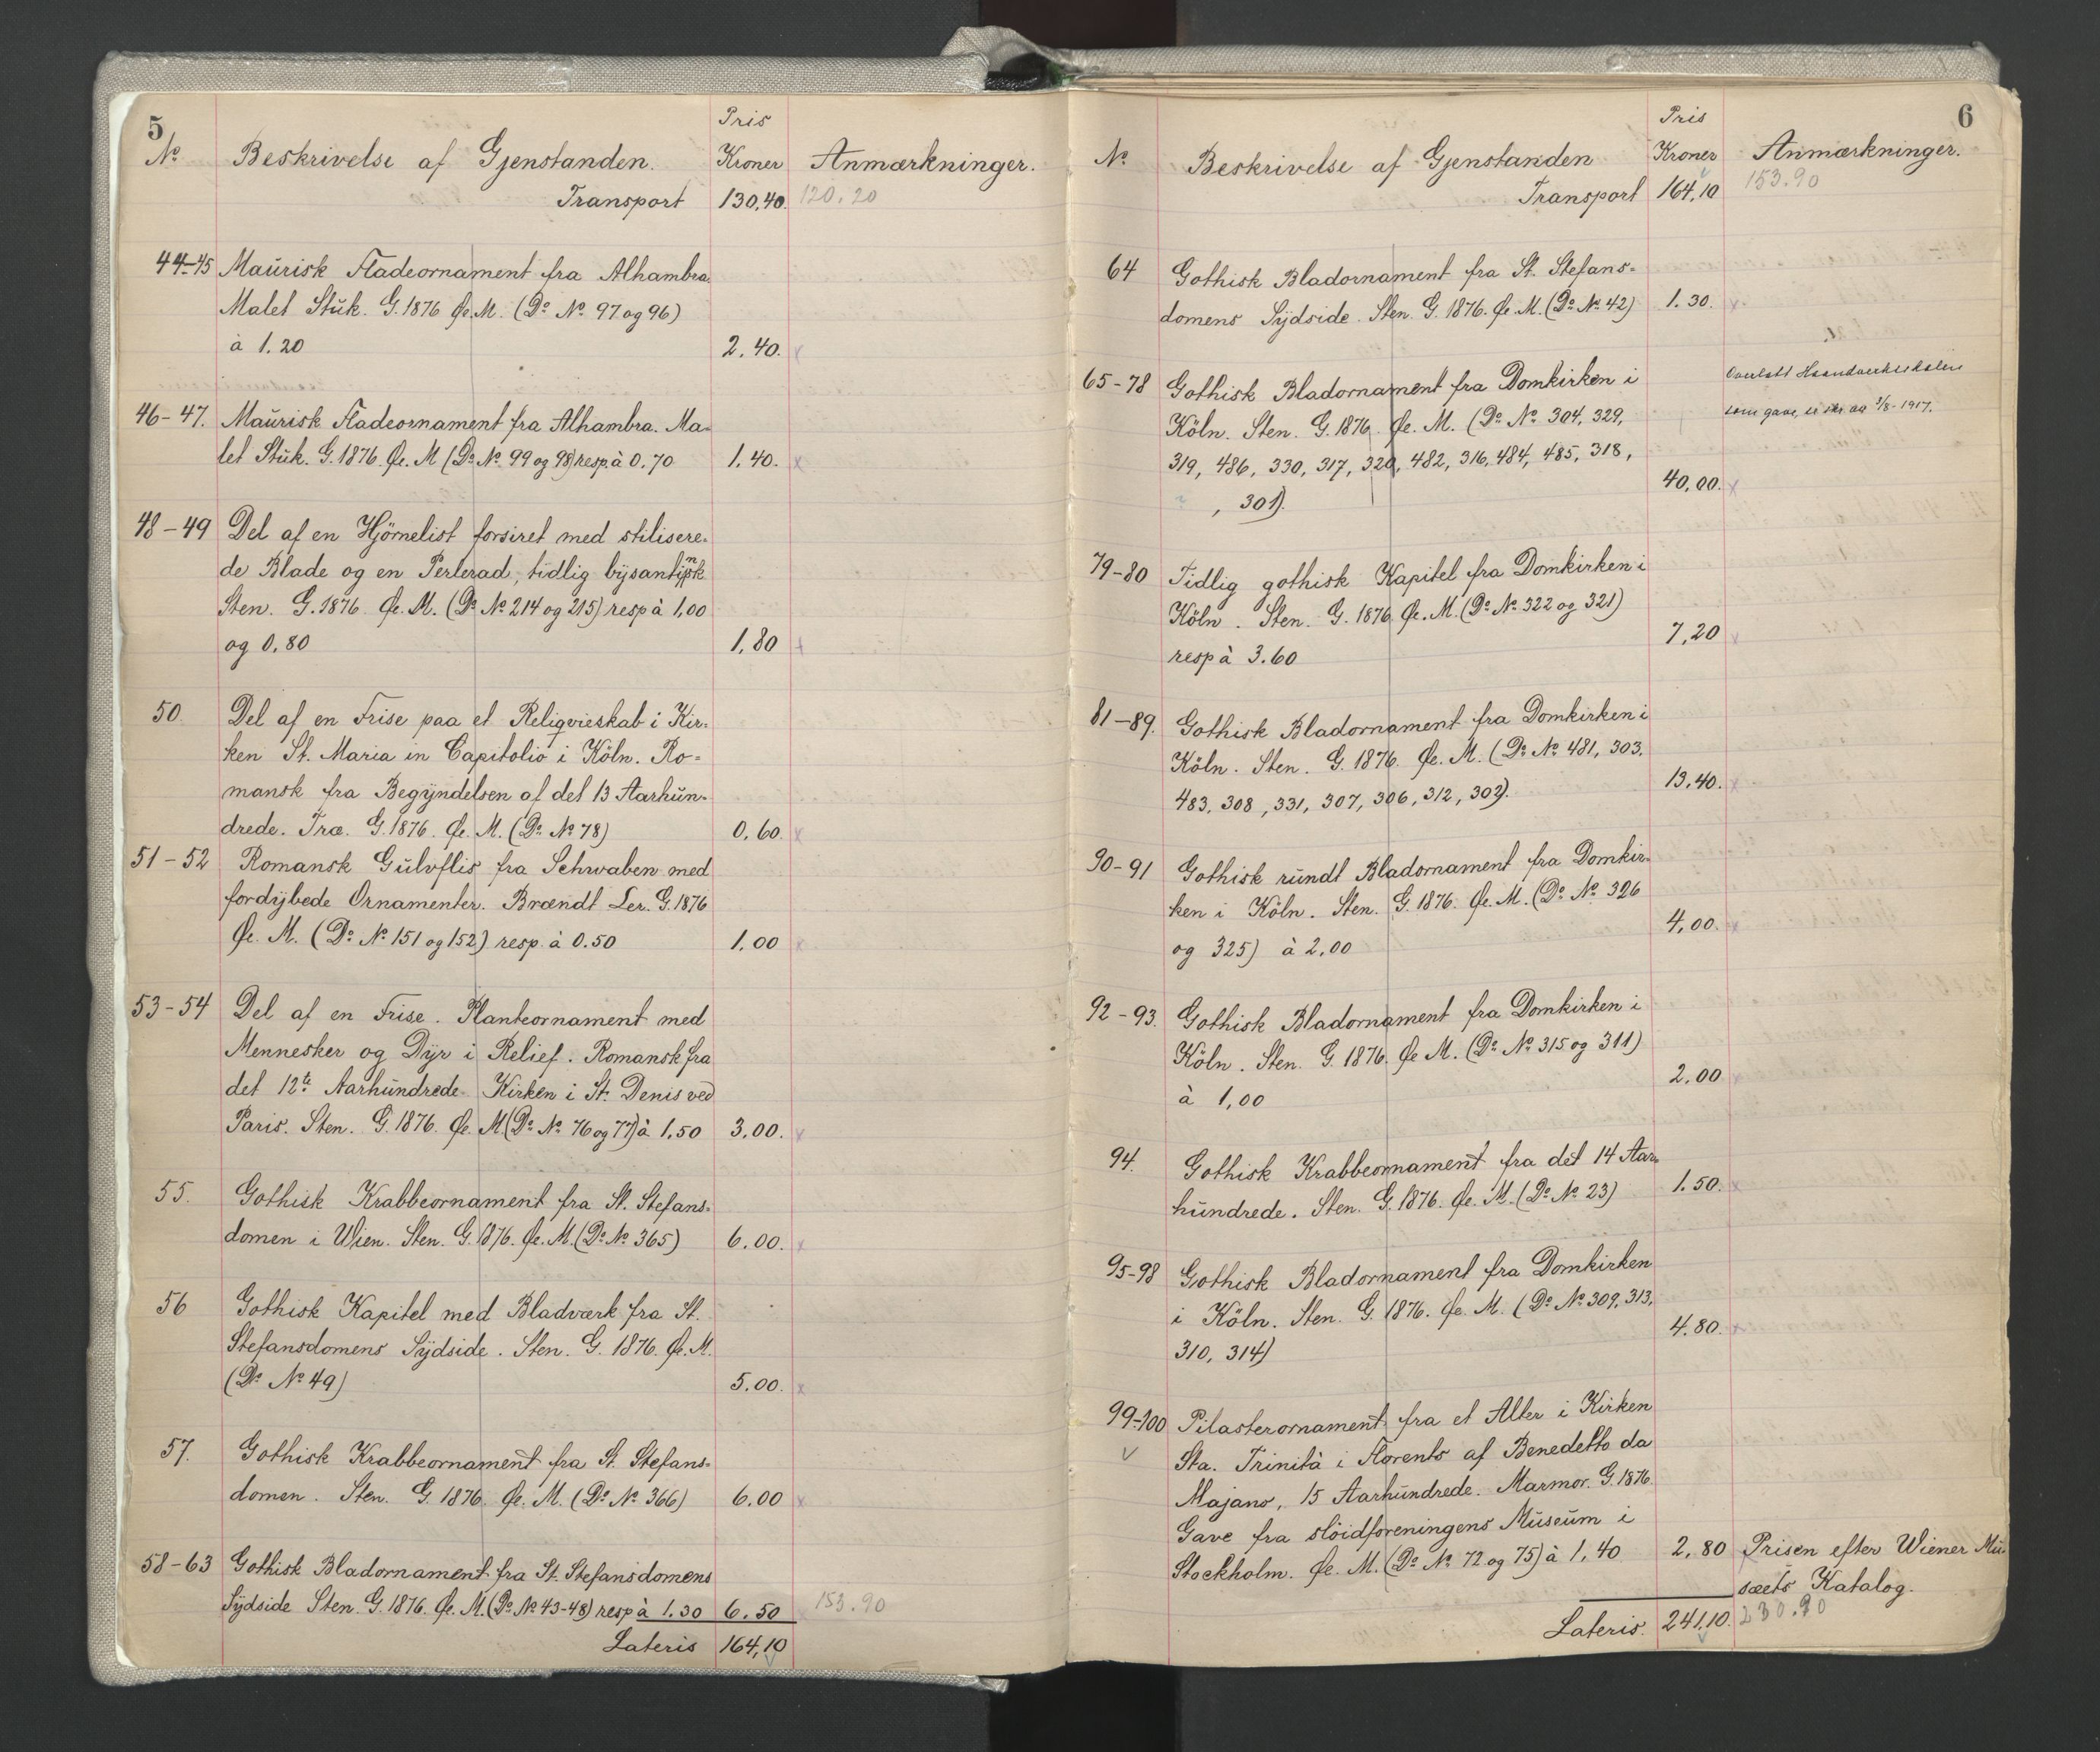 5
Pris
No Beskrivelse af Gjenstanden. Kroner Anmærkninger.
Transport 130,40. 120.20
44-45 Maurisk Fladeornament fra Alhambra.
Malet Stuk. G. 1876 Øe. M. (Do No 97 og 96)
à 1.20 2.40. x
46-47. Maurisk Fladeornament fra Alhambra. Ma-
let Stuk. G. 1876. Øe. M (Do No 99 og 98) resp. à 0.70 1.40. x
48-49 Del af en Hjørnelist forsiret med stilisere-
de Blade og en Perlerad, tidlig bysantinsk
Sten. G. 1876 Øe. M. (Do No 214 og 215) resp à 1,00
og 0,80 1,80 x
50. Del af en Frise paa et Religvieskab i Kir-
ken St. Maria in Capitolio i Köln. Ro-
mansk fra Begyndelsen af det 13 Aarhun-
drede. Træ. G. 1876. Øe. M. (Do No 78) 0,60. x
51-52 Romansk Gulvflis fra Schwaben med
fordybede Ornamenter. Brændt Ler. G. 1876
Øe. M. (Do No 151 og 152) resp. à 0.50 1,00 x
53-54 Del af en Frise. Planteornament med
Mennesker og Dyr i Relief. Romansk fra
det 12te Aarhundrede. Kirken i St. Denis ved
Paris. Sten. G. 1876. Øe. M. (Do No 76 og 77) à 1.50 3.00. x
55. Gothisk Krabbeornament fra St. Stefans-
domen i Wien. Sten. G. 1876. Øe. M. (Do No 365) 6.00. x
56 Gothisk Kapitel med Bladværk fra St.
Stefansdomens Sydside. Sten. G. 1876. Øe. M.
(Do No 49) 5.00. x
57. Gothisk Krabbeornament fra St. Stefans-
domen. Sten. G. 1876. Øe. M. (Do No 366) 6.00 x
58-63 Gothisk Bladornament fra St. Stefansdomens
Sydside Sten. G. 1876. Øe. M. (Do No 43-48) resp à 1.30 6.50 153.90
Lateris 164,10
6
Pris
No Beskrivelse af Gjenstanden Kroner Anmærkninger.
Transport 164,10 153.90
64 Gothisk Bladornament fra St. Stefans-
domens Sydside. Sten. G. 1876. Øe. M. (Do No 42) 1.30. x
65-78 Gothisk Bladornament fra Domkirken i
Overlatt Haandverkeskolen
Köln. Sten. G. 1876. Øe. M. (Do No 304, 329,
som gave, 1/8-1917.
319, 486, 330, 317, 320, 482, 316, 484, 485, 318,
, 301). 40,00. x
79-80 Tidlig gothisk Kapitel fra Domkirken i
Köln. Sten. G. 1876 Øe. M. (Do No 322 og 321)
resp à 3.60 7,20 x
81-89. Gothisk Bladornament fra Domkirken i
Köln. Sten. G. 1876. Øe. M. (Do No 481, 303,
483, 308, 331, 307, 306, 312, 302). 13,40. x
90-91 Gothisk rundt Bladornament fra Domkir-
ken i Köln. Sten. G. 1876. Øe. M. (Do No 326
og 325) à 2,00 4,00. x
92-93. Gothisk Bladornament fra Domkirken i
Köln. Sten. G. 1876. Øe M. (Do No 315 og 311)
à 1,00 2.00 x
94. Gothisk Krabbeornament fra det 14 Aar-
hundrede. Sten. G. 1876. Øe. M. (Do No 23) 1.50. x
95-98 Gothisk Bladornament fra Domkirken
i Köln. Sten. G. 1876. Øe. M. (Do No 309, 313,
310, 314) 4.80. x
99-100 Pilasterornament fra et Alter i Kirken
Sta. Trinità i Florents af Benedetto da
Majano, 15 Aarhundrede. Marmor. G. 1876.
Gave fra slöidforeningens Museum i
Stockholm. Øe. M. (Do No 72 og 75) à 1,40 2,80 Prisen efter Wiener Mu-
sæets Katalog.
Lateris. 241,10. 230.90